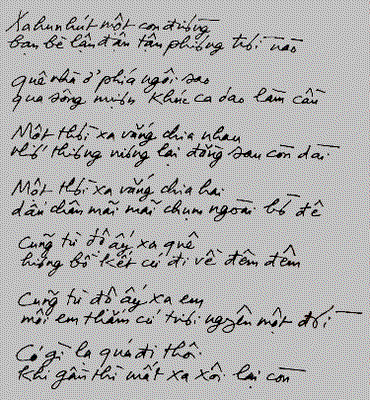 Xa hun hút một con đường
bạn bè lần đần tận phương trời nào
quê nhà ở phía ngôi sao
qua sông mượn khúc ca dao làm cầu
Một thời xa vắng chia nhau
nhớ thương niông lại đằng sau còn dài
Một thời xa vắng chia hai
dấu chân mãi mãi chụm ngoài bờ đê
Cũng từ độ ấy xa quê
hương bồ kết cứ đi về đêm đêm
Cũng từ độ ấy xa em
môi em thắm cứ tươi nguyên một đời
Có gì lạ quá đi thôi
Khi gần thì mất xa xôi lại còn